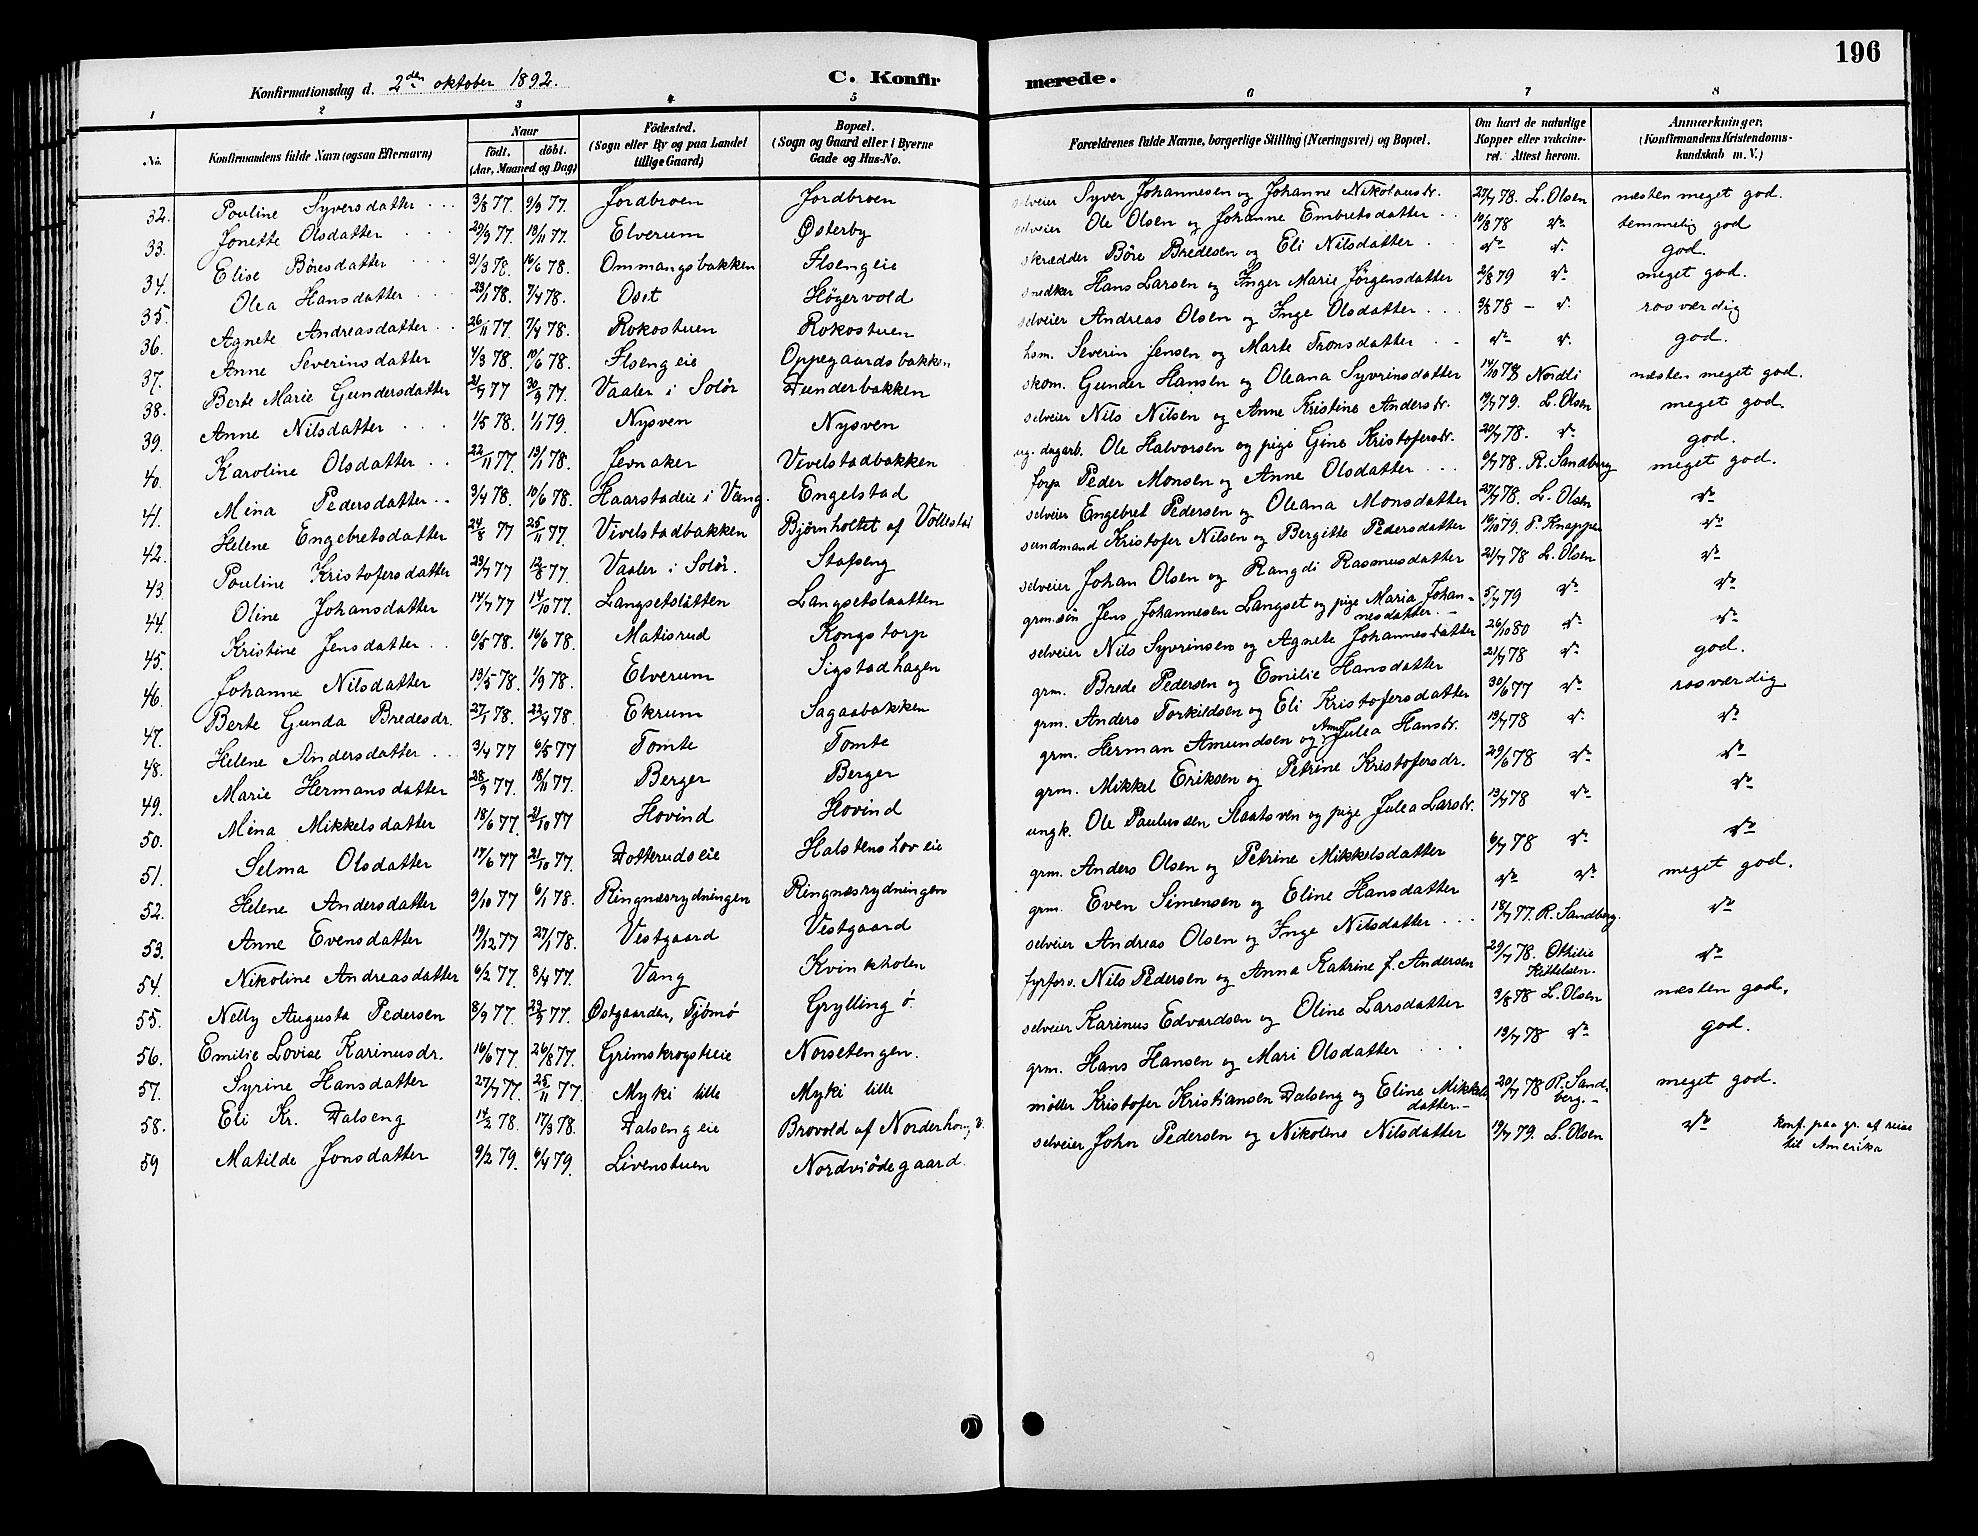 196
Konfirmationsdag d. 2den oktober 1892. C. Konfirmerede.
1 2 3 4 5 6 7 8
No. Konfirmandens fulde Navn (ogsaa Efternavn) Naar födt. döbt. (Aar, Maaned og Dag) Födested. (Sogn eller By og paa Landet tillige Gaard) Bopæl. (Sogn og Gaard eller i Byerne Gade og Hus-No. Forældrenes fulde Navne, borgerlige Stilling (Næringsvei) og Bopæl. Om havt de naturlige Kopper eller vakcineret. Attest herom. Anmærkninger, (Konfirmandens Kristendomskundskab m. V.)
32. Pouline Syversdatter 3/8 77. 9/9 77. Jordbroen Jordbroen selveier Syver Johannesen og Johanne Nikolausdr. 27/7 78. L. Olsen næsten meget god.
33. Jonette Olsdatter 29/9 77. 18/11 77. Elverum Østerby selveier Ole Olsen og Johanne Embretsdatter 10/8 78 do temmelig god
34. Elise Böresdatter 31/3 78. 16/6 78. Ommangsbakken Ilsengeie skrædder Böre Bredesen og Eli Nilsdatter do do god.
35. Olea Hansdatter 23/1 78. 7/4 78. Oset Högervold snedker Hans Larsen og Inger Marie Jörgensdatter 2/8 79 do meget god.
36. Agnete Andreasdatter 26/11 77. 7/4 78. Rokostuen Rokostuen selveier Andreas Olsen og Inge Olsdatter 9/8 78 - do rosværdig
37. Anne Severinsdatter 4/3 78. 10/6 78. Ilsengeie Oppegaardsbakken hsm. Severin Jensen og Marte Tronsdatter do do god.
38. Berte Marie Gundersdatter 21/7 77 30/9 77. Vaaler i Solör Dunderbakken skom. Gunder Hansen og Oleana Syvrinsdatter 14/10 78 Nordli næsten meget god.
39. Anne Nilsdatter 1/5 78. 1/1 79. Nysven Nysven selveier Nils Nilsen og Anne Kristine Andersdr. 19/7 79. L. Olsen meget god.
40. Karoline Olsdatter 22/11 77. 13/1 78. Jevnaker Vivelstadbakken ug. dagarb. Ole Halvorsen og pige Gine Kristofersdr. 20/7 78. do god.
41. Mina Pedersdatter 3/4 78. 10/6 78. Haarstadeie i Vang. Engelstad forp Peder Monsen og Anne Olsdatter 6/7 78. R. Sandberg meget god.
42. Helene Engebretsdatter 24/8 77 25/11 77. Vivelstadbakken Bjørnholtet af Vollestad selveier Engebret Pedersen og Oleana Monsdatter 27/7 78. L. Olsen do
43. Pouline Kristofersdatter 29/7 77 12/8 77. Vaaler i Solör. Stafseng sundmand Kristofer Nilsen og Bergitte Pedersdatter 19/10 79. P. Knappen do
44. Oline Johansdatter 14/7 77 14/10 77. Langsetslätten Langsetslaatten selveier Johan Olsen og Rangdi Rasmusdatter 21/7 78 L. Olsen do
45. Kristine Jensdatter 6/5 78. 16/6 78. Matisrud Kongstorp grm.sön Jens Johannesen Langset og pige Maria Johannesdatter 5/7 79 do do
46. Johanne Nilsdatter 13/5 78. 1/9 78. Elverum Sigstadhagen selveier Nils Syvrinsen og Agnete Johannesdatter 26/10 80 do do
47. Berte Gunda Bredesdr. 27/1 78. 22/4 78. Ekrum Sagaabakken grm. Brede Pedersen og Emilie Hansdatter 21/7 78 do god.
48. Helene Andersdatter 3/4 77 6/5 77 Tomte Tomte grm. Anders Torkildsen og Eli Kristofersdatter 30/6 77 do rosværdig
49. Marie Hermansdatter 28/9 77. 18/11 77. Berger Berger grm. Herman Amundsen og Anne Julea Hansdr. 13/7 78 do do
50. Mina Mikkelsdatter 18/6 77. 21/10 77 Hovind Hovind grm. Mikkel Eriksen og Petrine Kristofersdr. 29/6 78 do do
51. Selma Olsdatter 17/6 77 21/10 77. Dotterudseie Halstenshoveie ungk. Ole Paulussen Slaatsven og pige Julea Larsdr. 13/7 78 do do
52. Helene Andersdatter 9/10 77 6/1 78. Ringnæsrydningen Ringnæsrydningen grm. Anders Olsen og Petrine Mikkelsdatter 6/7 78 do do
53. Anne Evensdatter 19/12 77 27/1 78. Vestgaard Vestgaard grm. Even Simensen og Eline Hansdatter do do meget god.
54. Nikoline Andreasdatter 6/2 77. 8/4 77. Vang Kvinkholen selveier Andreas Olsen og Inge Nilsdatter 18/7 77. R. Sandberg. do
55. Nelly Augusta Pedersen 8/3 77. 29/3 77. Østgaarden, Tjömö Grylling ö fyrforv. Nils Pedersen og Anna Katrine f. Andersen 29/7 78. Othilie Kittelsen. do
56. Emilie Lovise Karinusdr. 16/6 77. 26/8 77. Grimskrogsteie Norsetengen. selveier Karinus Edvardsen og Oline Larsdatter 3/8 78 L. Olsen næsten god.
57. Syrine Hansdatter 27/7 77. 25/11 77. Myki lille Myki lille grm. Hans Hansen og Mari Olsdatter 13/7 78 do god.
58. Eli Kr. Dalseng 14/2 78. 17/3 78. Dalsengeie Brovold af Norderhoug v. möller Kristofer Kristiansen Dalseng og Eline Mikkelsdatter 20/7 78 R. Sandberg. meget god.
59 Matilde Jonsdatter 9/2 79. 6/4 79. Livenstuen Nordviödegaard. selveier John Pedersen og Nikoline Nilsdatter 19/7 79. L. Olsen do Konf. paa gr. af reise til Amerika